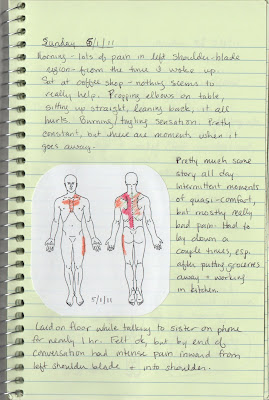 Sunday 5/1/11
Morning - lots of pain in left shoulder-blade
region - from the time I woke up.
Sat at coffee shop - nothing seems to
really help. Propping elbows on table,
sitting up straight, leaning back, it all
hurts. Burning/tugging sensation. Pretty
constant, but there are moments when it
goes away.
Pretty much same
story all day
intermittent moments
of quasi-comfort,
but mostly really
bad pain. Had to
lay down a
couple times, esp.
after putting groceries
away + working
in kitchen.
5/1/11
Laid on floor while talking to sister on phone
for nearly 1 hr. Felt ok, but by end of
conversation had intense pain inward from
left shoulder blade + into shoulder.